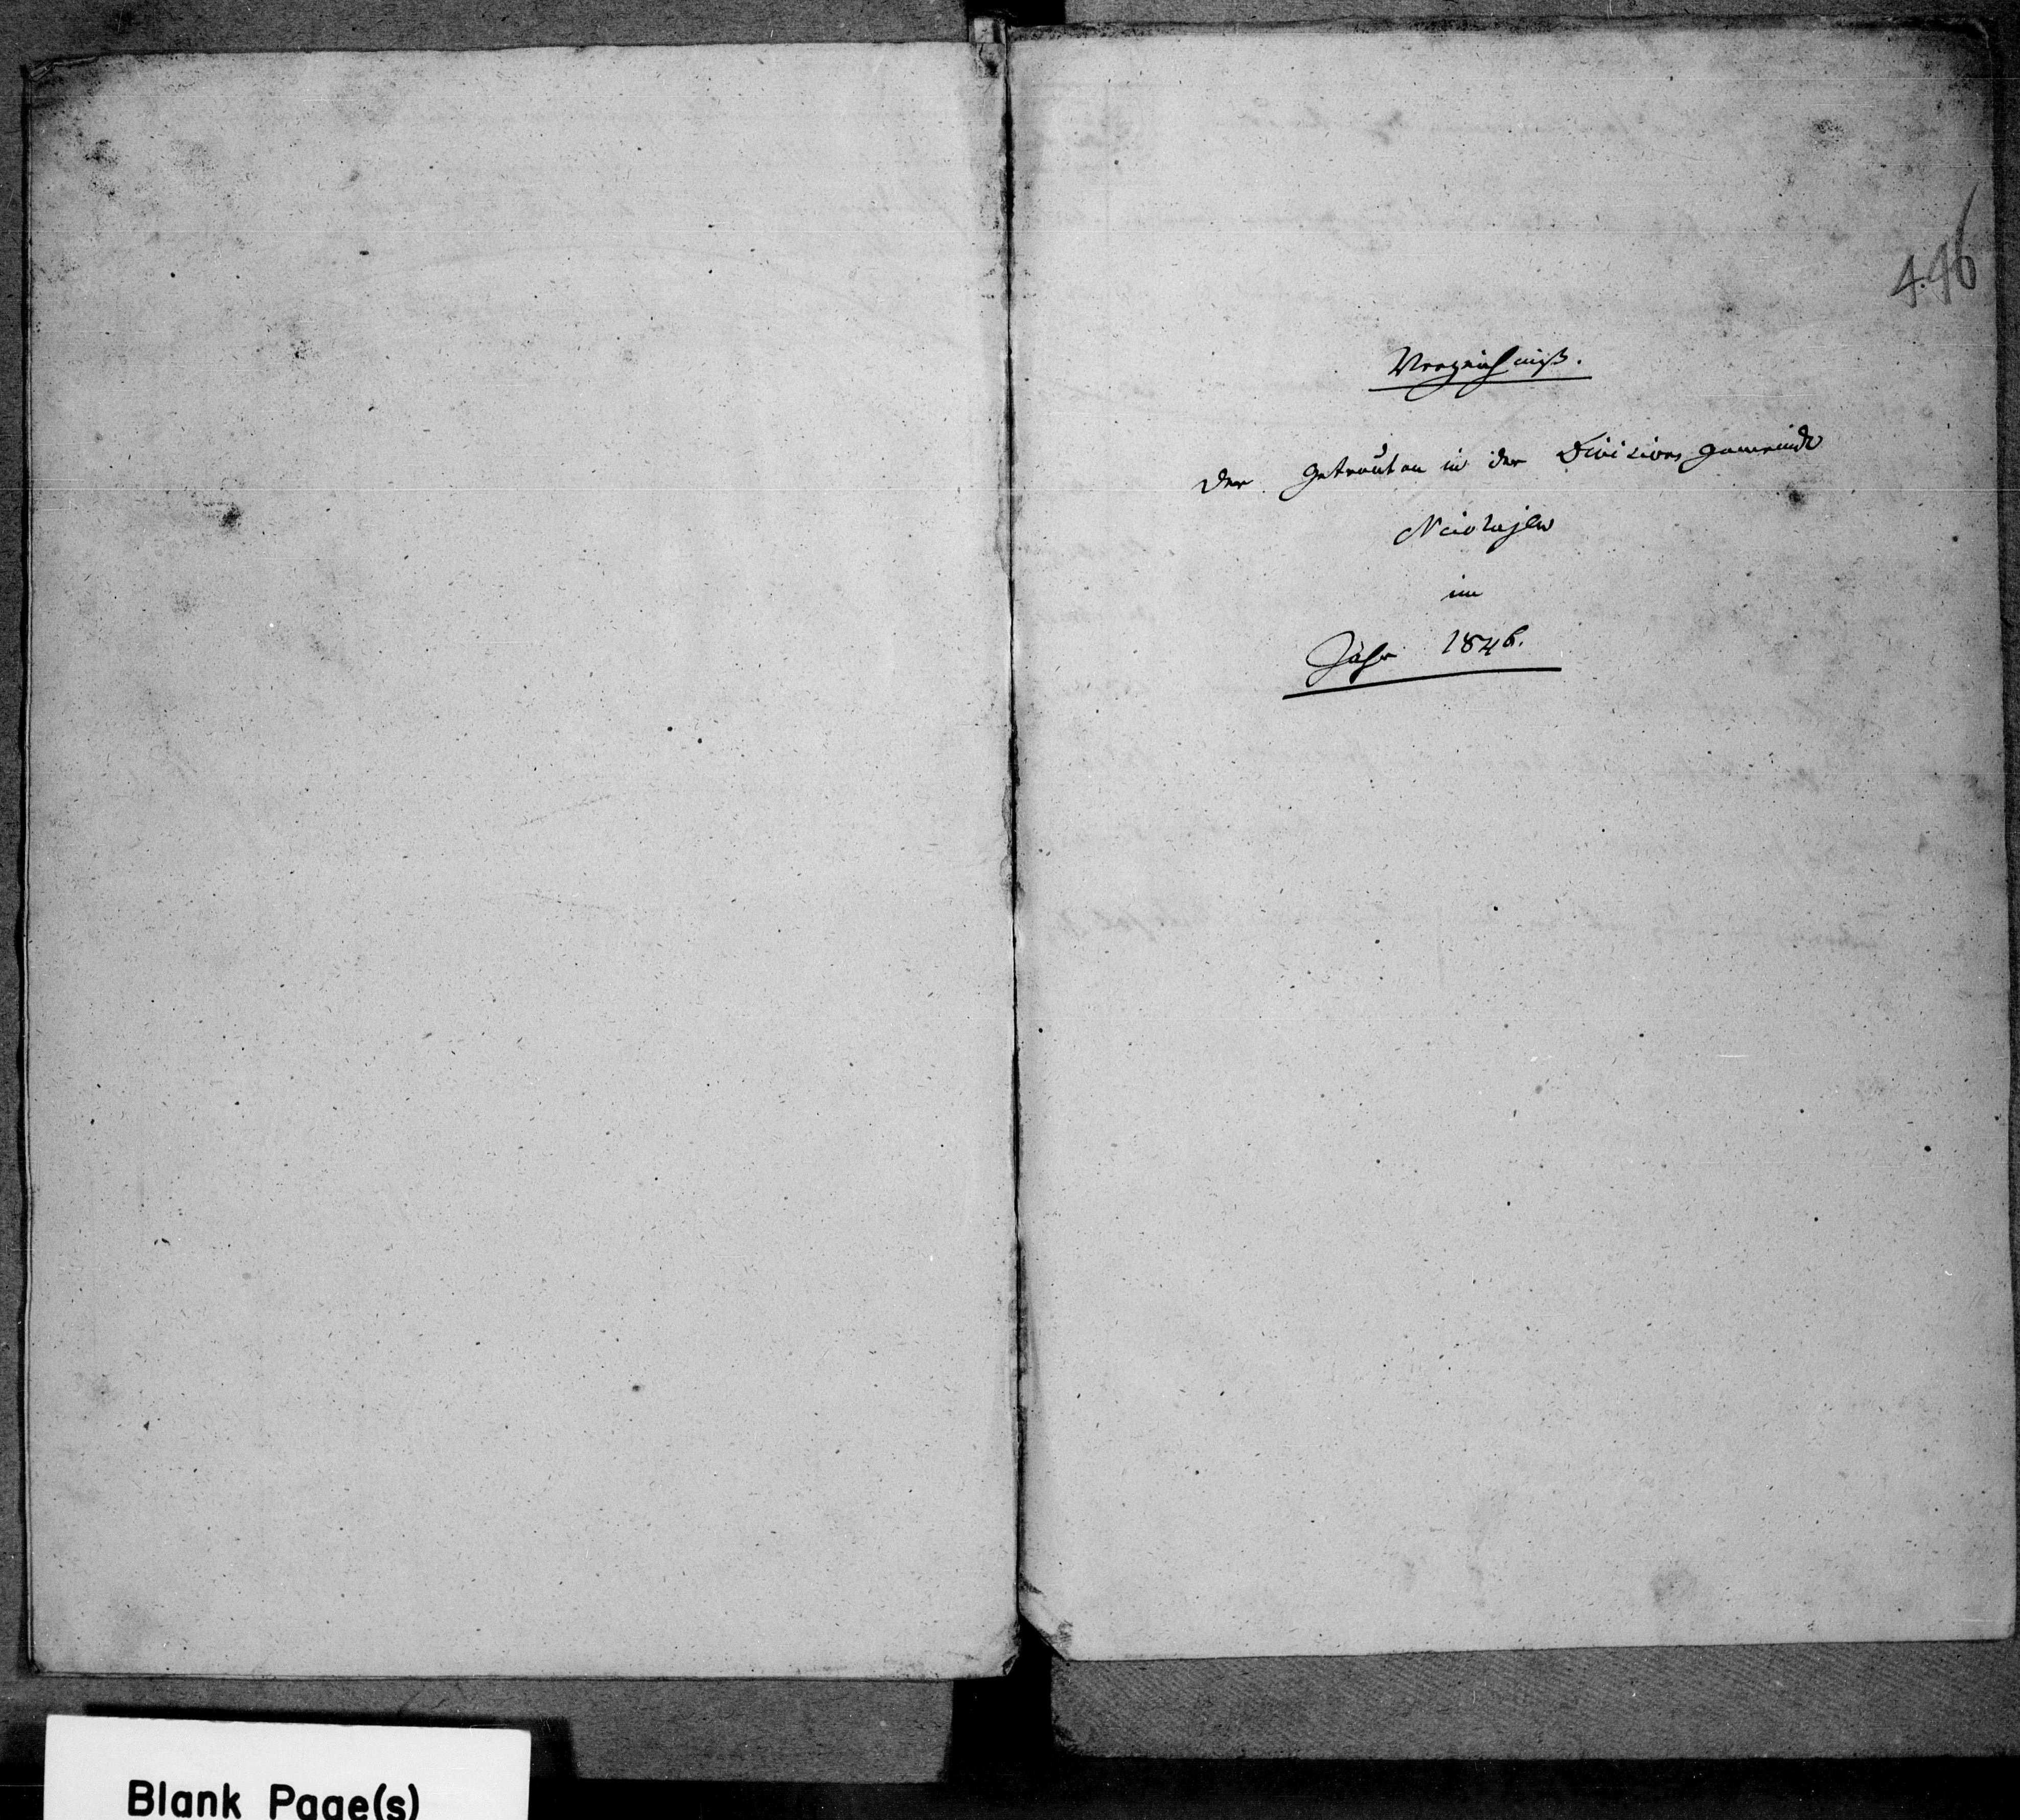 446
Verzeichniß.
der Getrauten in der Divisionsgemeinde
Nicolajew
im
Jahr 1846.
Blank Page(s)